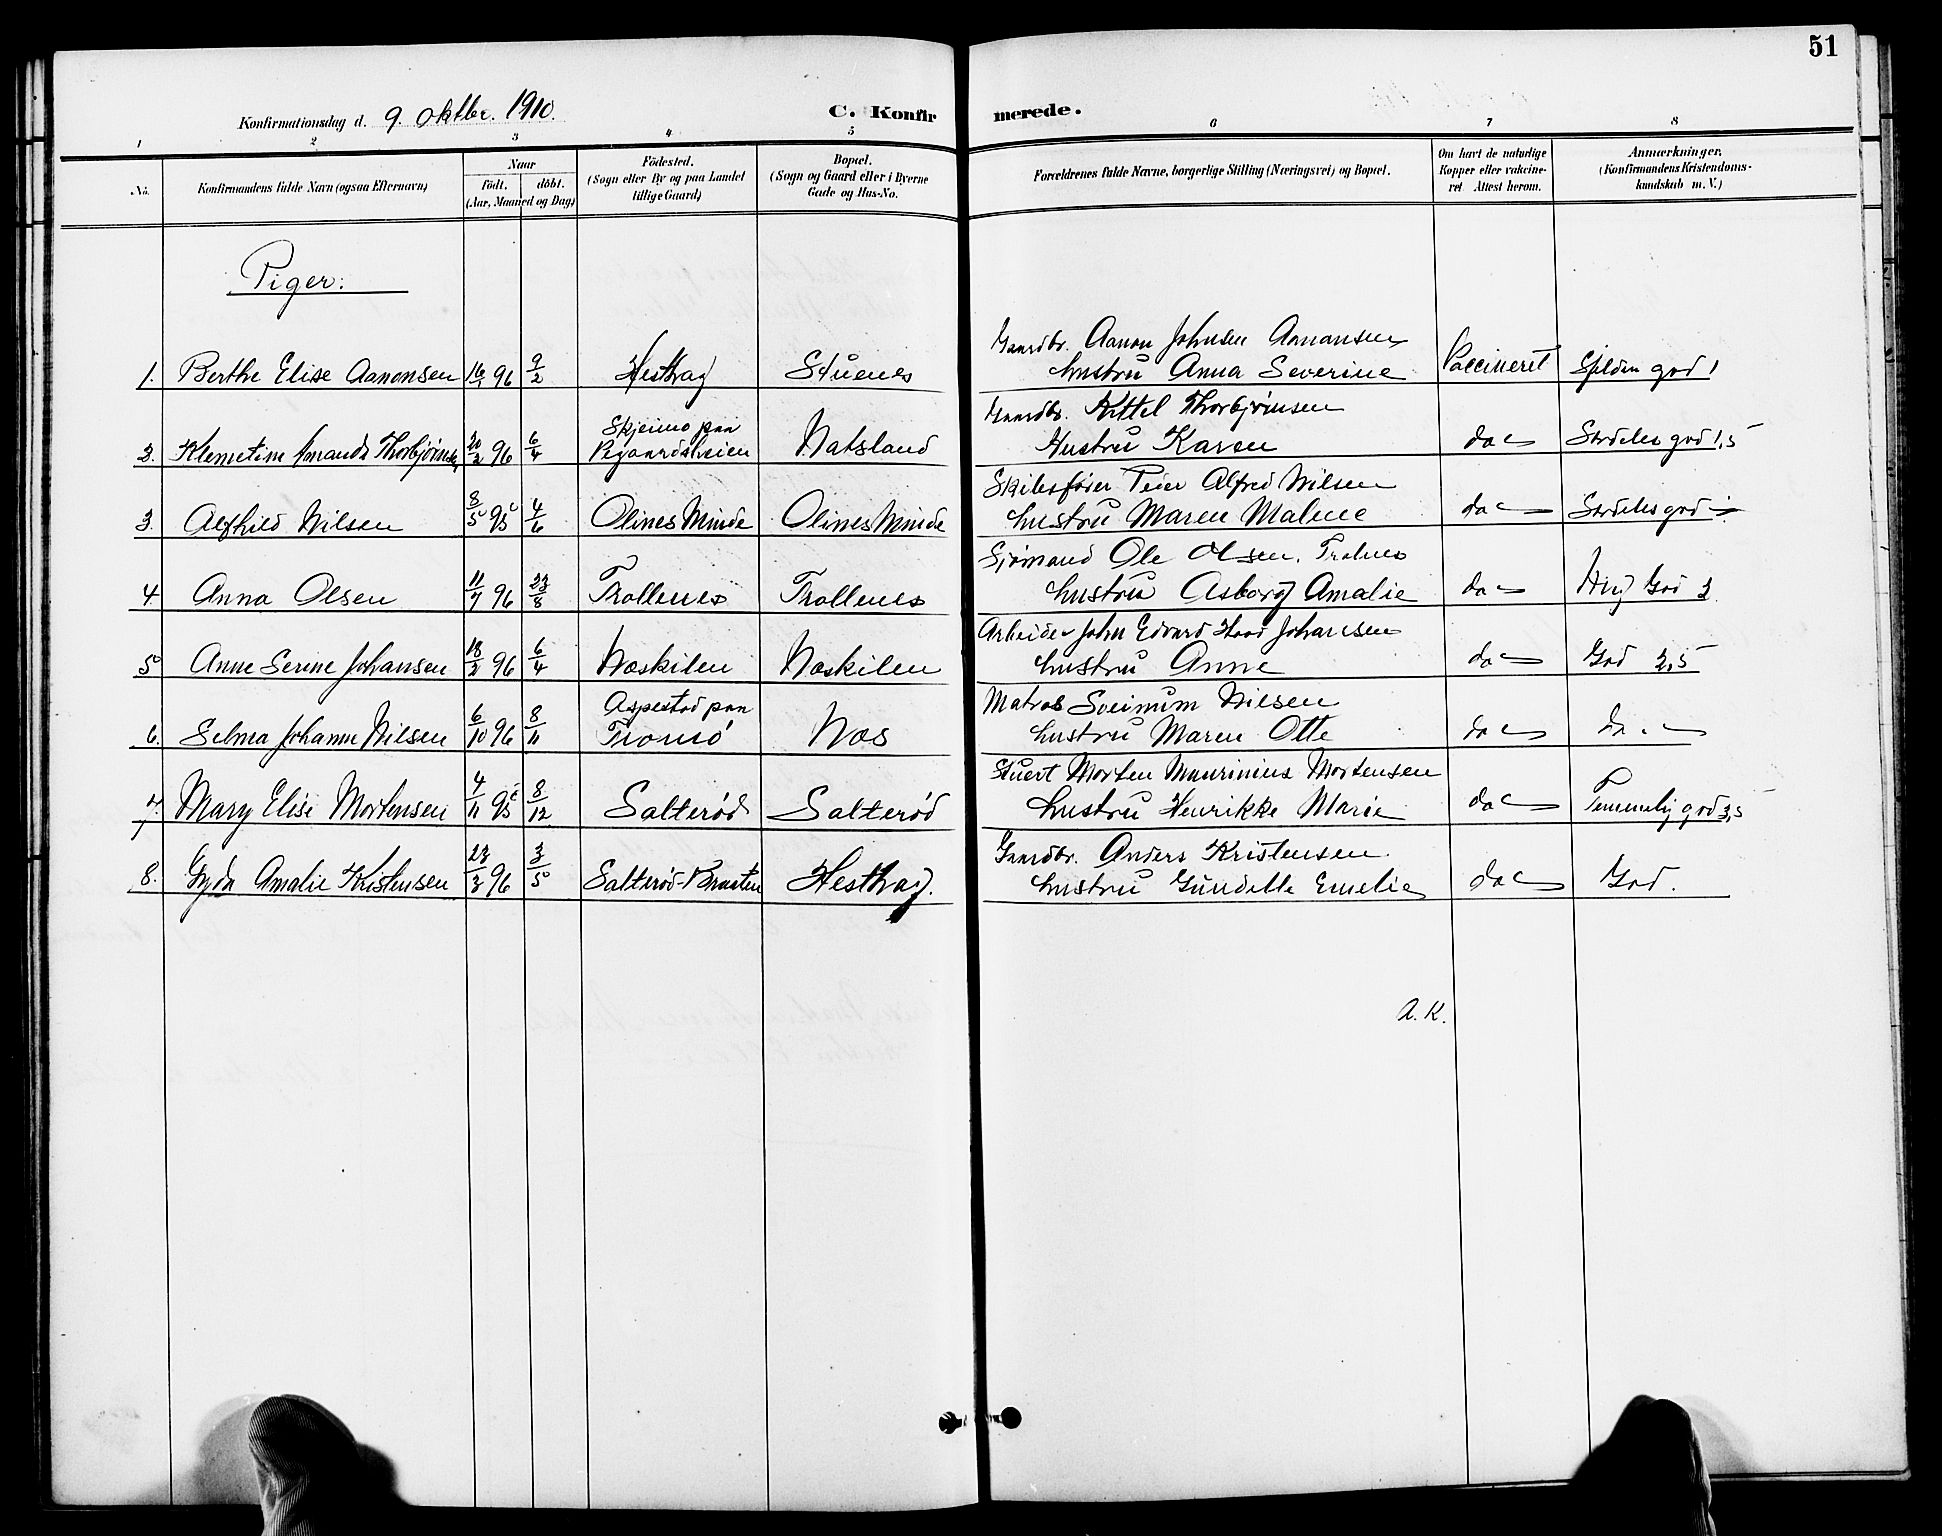 51
Konfirmationsdag d. 9. oktbr. 1910.
C. Konfirmerede.
1 2 3 4 5 6 7 8
No.
Konfirmandens fulde Navn (ogsaa Efternavn)
Naar
födt. döbt.
(Aar, Maaned og Dag)
Födested.
(Sogn eller By og paa Landet
tillige Gaard)
Bopæl.
(Sogn og Gaard eller i Byerne
Gade og Hus-No.
Forældrenes fulde Navne, borgerlige Stilling (Næringsvei) og Bopæl.
Om havt de naturlige
Kopper eller vakcine-
ret Attest herom.
Anmærkninger.
(Konfirmandens Kristendoms-
kundskab m. V.)
Piger:
Gaardbr. Aanon Johnsen Aanonsen
1. Berthe Elise Aanonsen 16/1 96 9/2 Hesthag Stuenes hustru Anna Severine Vaccineret Sjelden god 1
Skjeimo paa Gaardbr. Kittel Thorbjörnsen
2. Klemetine Amanda Thorbjörnsen 20/2 96 6/4 Natsland Hustru Karen do Særdeles god 1,5
Skibsfører Peder Alfred Nilsen
3. Alfhild Nilsen 8/5 95 4/6 Olines Minde Olines Minde hustru Maren Malene do Særdeles god
Sjömand Ole Olsen. Trolnes
4. Anna Olsen 11/7 96 23/8 Trollenes Trollenes hustru Asborg Amalie do Meg God 2
Arbeider John Edvard Johansen
5 Anne Serine Johansen 18/2 96 6/4 Næskilen Næskilen hustru Anne do God 2,5
Aspestad paa Matros Sveinum Nilsen
6. Selma Johanne Nilsen 6/10 96 8/11 Tromö Næs hustru Maren Otte do do
Stuert Morten Maurinius Mortensen
7. Mary Elise Mortensen 4/11 95 8/12 Salterød Salterød hustru Henrikke Marie do Temmelig god 3,5
Gaardbr. Anders Kristensen
8. Gyda Amalie Kristensen 23/3 96 3/5 Salterød-Braaten Hesthag. hustru Gundelle Emelie do God.
A. K.